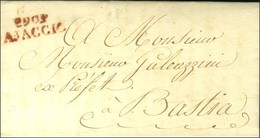 P.90.P.
AJACCIO
A Monsieur
Monsieur Galeazzini
ex Préfet
à Bastia